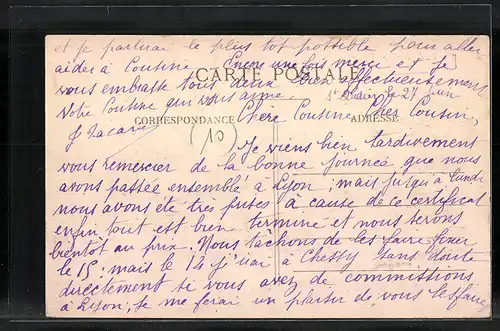 et je partirai le plus tot possible pour aller
aider à Cousine. Encore une fois merci et je
vous embrasse tous deux bien affectueusement
Votre Cousine qui vous aime.
CARTE POSTALE
le 27 Juin
J Zacarie
CORRESPONDANCE
ADRESSE
(10)
Chère Cousine, Cher Cousin,
Je viens bien tardivement
vous remercier de la bonne journeé que nous
avons passeé ensemble à Lyon; mais jusqu'à lundi
nous avons été très prises à cause de ce certificat
enfin tout est bien terminé et nous serons
bientôt au prix. Nous tâchons de les faire fixer
le 15; mais le 14 j'irai à Chessy sans doute
directement si vous avez de commissions
à Lyon, je me ferai un plaisir de vous les faire